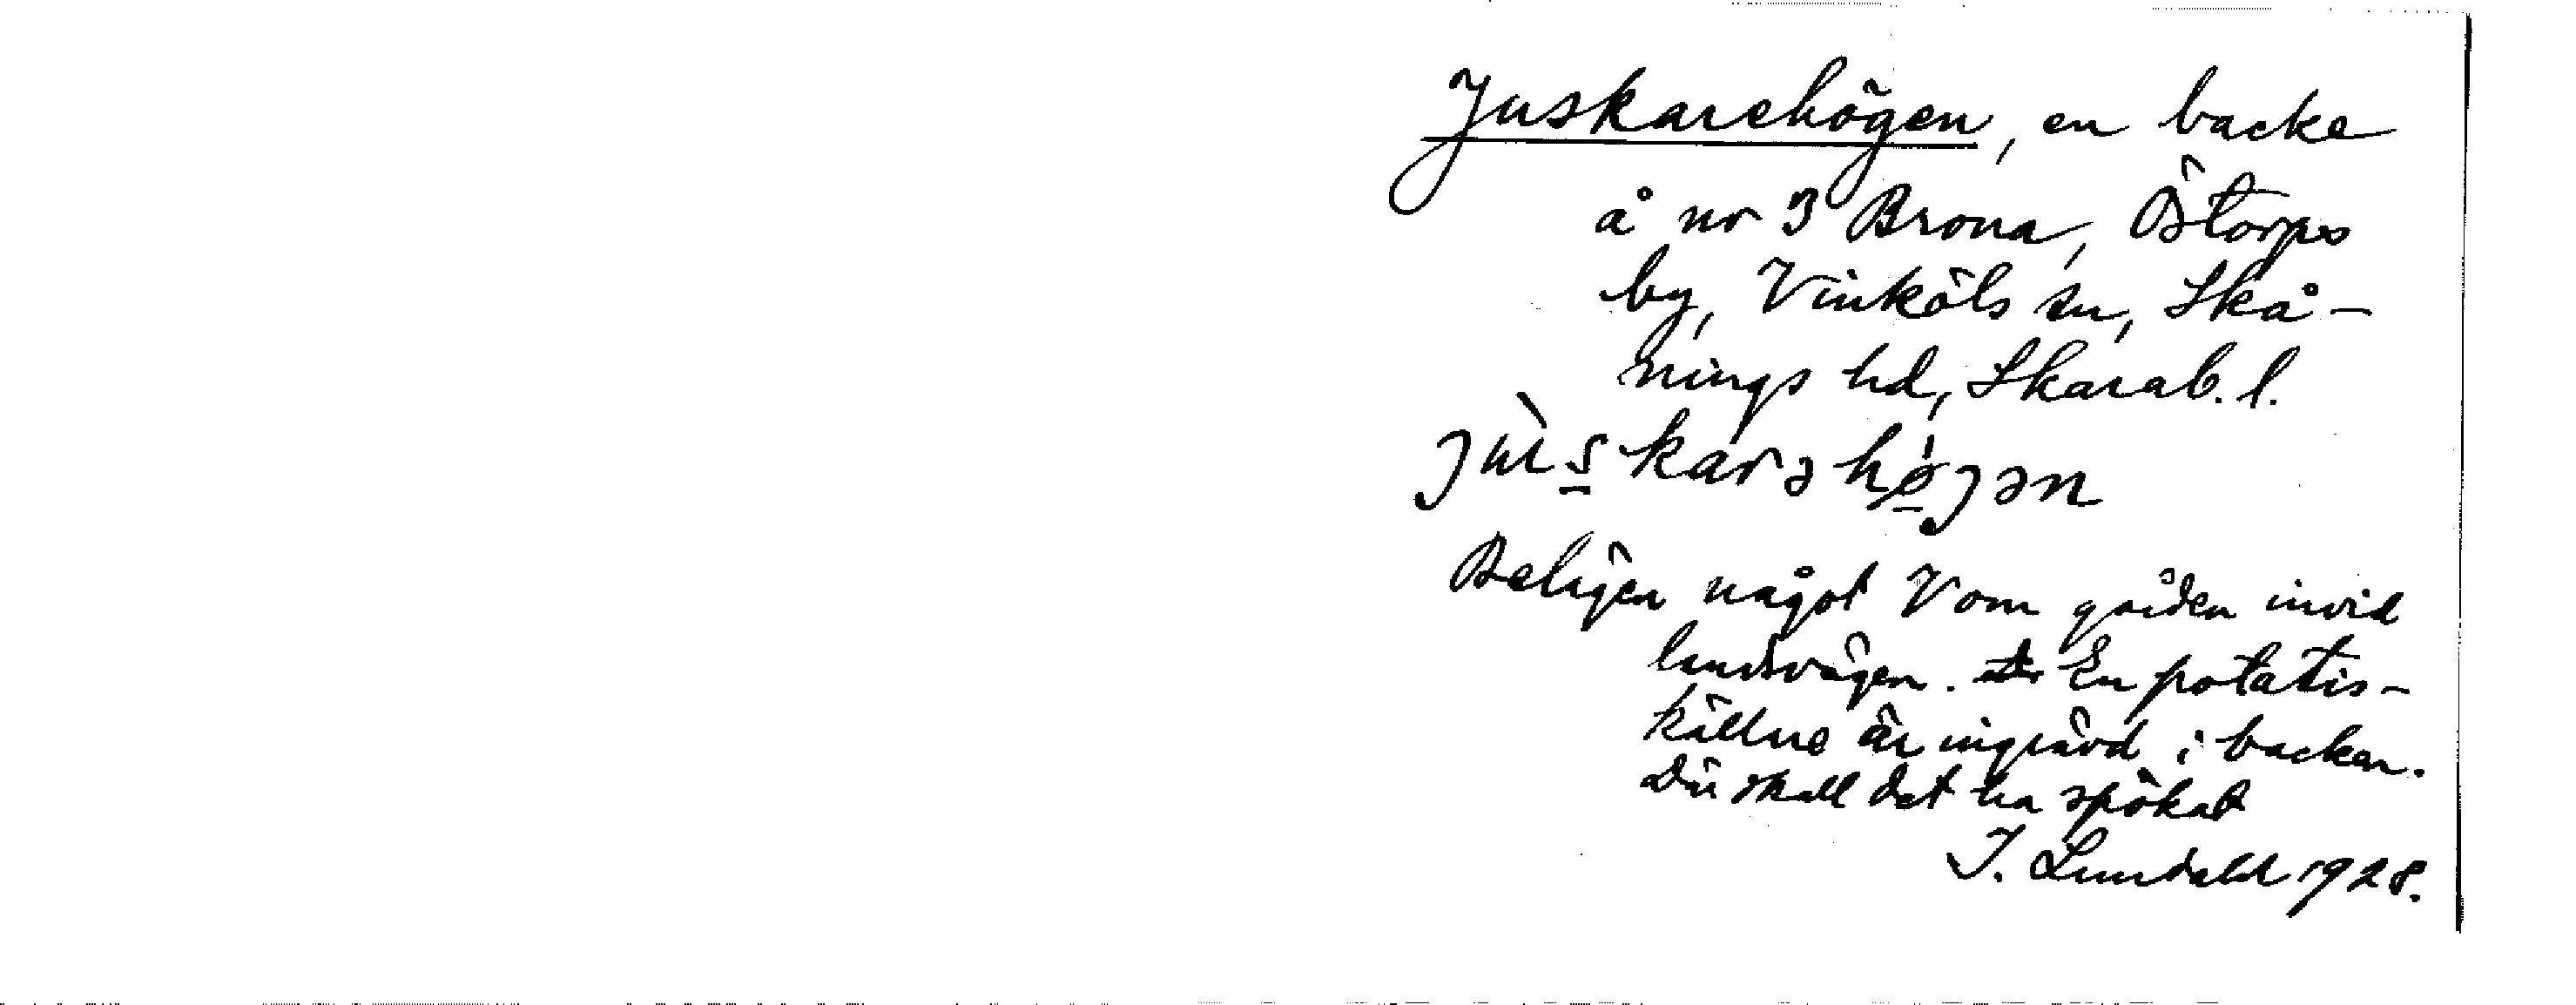 Juskarehögen, en backe
å nr 3 Brona, Östorps
by, Vinköls sn, Skå-
nings hd, Skarab. l.
jùs̲karəhø̲jən
Belägen något V om gården invid
landsvägen. En potatis-
källare är ingrävd i backen.
Där skall det ha spökat
I. Lundahl 1928.